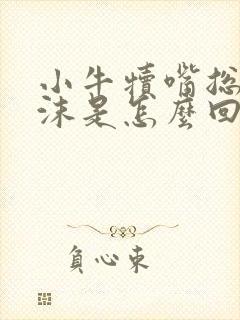 小牛犊嘴总
沫是怎麽回
负心束